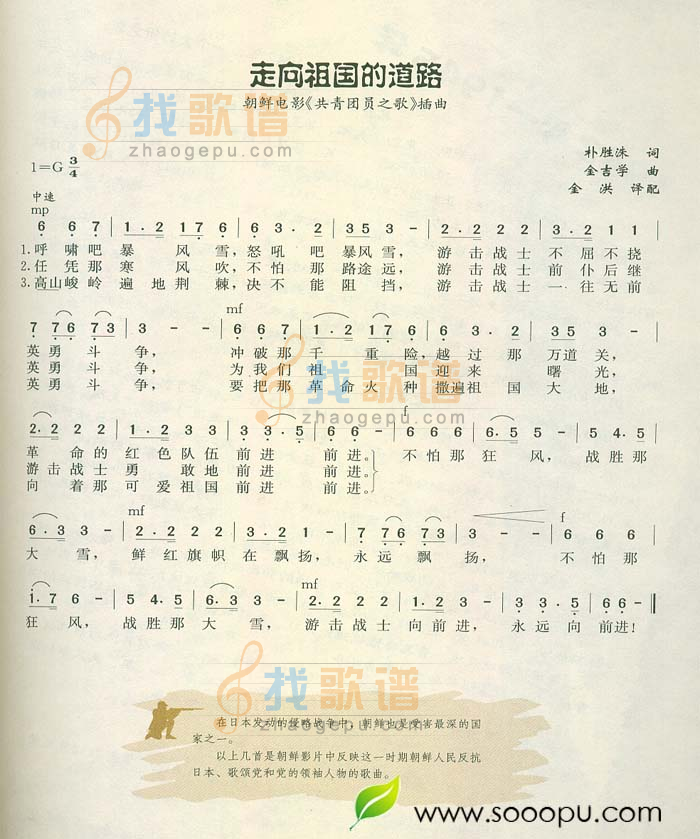 走向祖国的道路
朝鲜电影《共青团员之歌》插曲
找歌谱
zhaogepu.com
朴胜洙 词
1=G 3/4
金吉学 曲
金 洪 译配
中速
mp
6 6 7 | 1·2 1 7 6 | 6 3· 2 | 3 5 3 - | 2·2 2 2 | 3·2 1 1 |
1.呼 啸吧 暴 风 雪，怒吼 吧 暴风雪， 游击战士 不 屈不挠
2.任 凭那 寒 风 吹，不怕 那 路途远， 游击战士 前 仆后继
3.高山峻岭 遍 地荆 棘，决不 能 阻 挡， 游击战士 一 往无前
mf
7 7 6 7 3 | 3 - - | 6 6 7 | 1·2 1 7 6 | 6 3· 2 | 3 5 3 - |
英勇 斗 争， 冲破那 千 重 险，越过 那 万道 关，
英勇 斗 争， 为我们 祖 国 迎来 曙 光，
英勇 斗 争， 要把那 革 命火 种 撒遍祖 国 大 地，
找歌谱
zhaogepu.com
f
2·2 2 2 | 1·2 3 3 | 3·3·5 | 6 6 - | 6 6 6 | 6·5 5 | 5 4·5 |
革 命的 红 色队伍 前进 前进。 不怕那 狂 风， 战胜那
游击战士 勇 敢地 前进 前进。
向 着那 可 爱祖国 前进 前进。
mf
f
6·3 3 | 2·2 2 2 | 3·2 1 - | 7 7 6 7 3 | 3 - - | 6 6 6 |
大 雪， 鲜 红旗帜 在飘扬， 永远 飘 扬， 不怕那
mf
1·7 6 | 5 4·5 | 6·3 3 | 2·2 2 2 | 1·2 3 3 | 3·3·5 | 6 6 - ‖
狂 风， 战胜那 大 雪， 游击战士 向前进， 永远 向 前进！
找歌谱
zhaogepu.com
在日本发动的侵略战争中，朝鲜也是受害最深的国
家之一。
以上几首是朝鲜影片中反映这一时期朝鲜人民反抗
日本、歌颂党和党的领袖人物的歌曲。
www.sooopu.com